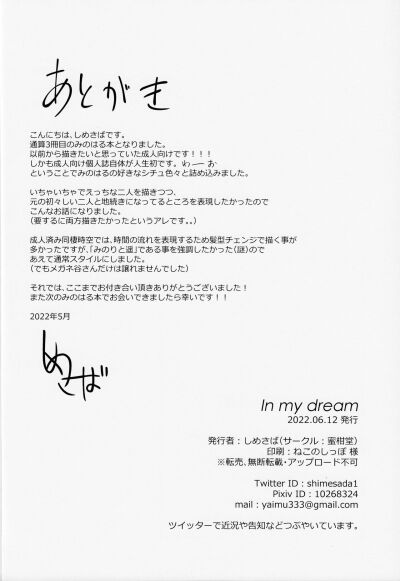 あとがき
こんにちは、しめさばです。
通算3冊目のみのはる本となりました。
以前から描きたいと思っていた成人向けです！！！
しかも成人向け個人誌自体が人生初です。わーーお
ということでみのはるの好きなシチュ色々と詰め込みました。
いちゃいちゃでえっちな二人を描きつつ、
元の初々しい二人と地続きになってるところを表現したかったので
こんなお話になりました。
（要するに両方描きたかったというアレです。。）
成人済み同棲時空では、時間の流れを表現するため髪型チェンジで描く事が
多かったですが、「みのりと遥」である事を強調したかった（謎）ので
あえて通常スタイルにしました。
（でもメガネ谷さんだけは譲れませんでした）
それでは、ここまでお付き合い頂きありがとうございました！
また次のみのはる本でお会いできましたら幸いです！！
2022年5月
しめさば
In my dream
2022.06.12 発行
発行者：しめさば（サークル：蜜柑堂）
印刷：ねこのしっぽ 様
※転売、無断転載・アップロード不可
Twitter ID : shimesada1
Pixiv ID : 10268324
mail : yaimu333@gmail.com
ツイッターで近況や告知などつぶやいています。